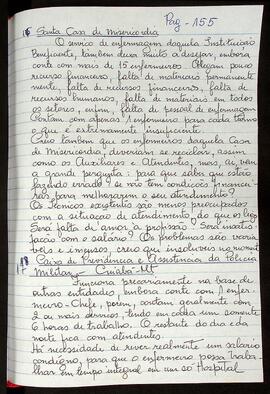 Pag - 155
16 Santa Casa de Misericórdia
O serviço de enfermagem daquela Instituição
Beneficente, também deixa muito a desejar, embora
conte com mais de 15 enfermeiros. Alegam pouco
recurso financeiro, falta de materiais permanente
mente, falta de recursos financeiros, falta de
recursos humanos, falta de materiais em todos
os setores, enfim, falta de pessoal de enfermagem
Contam com apenas 1 enfermeiro para cada turno
o que é extremamente insuficiente.
Creio também que os enfermeiros daquela Casa
de Misericórdia, deveriam se reciclar, assim
como os Auxiliares e Atendentes, mas, aí vem
a grande pergunta: para que saber que estão
fazendo errado se não tem condições financei
ras para melhorarem o seu atendimento?
Os Técnicos existentes são menos preocupados
com a situação de atendimento, do que os leigos
Será falta de amor à profissão? Será insatis
fação com o salário? Os problemas são variá
veis e imensos, creio que insolúveis no momento
17 Caixa de Previdência e Assistência da Polícia
Militar - Cuiabá - MT
Funciona precariamente na base de
outras entidades, embora conte com 1 enfer
meiro-Chefe, porém, contam geralmente com
2 ou mais serviços, tendo em cada um somente
6 horas de trabalho. O restante do dia e da
noite fica com atendentes.
Há necessidade de rever realmente um salário
condigno, para que o enfermeiro possa traba
lhar em tempo integral em um só Hospital